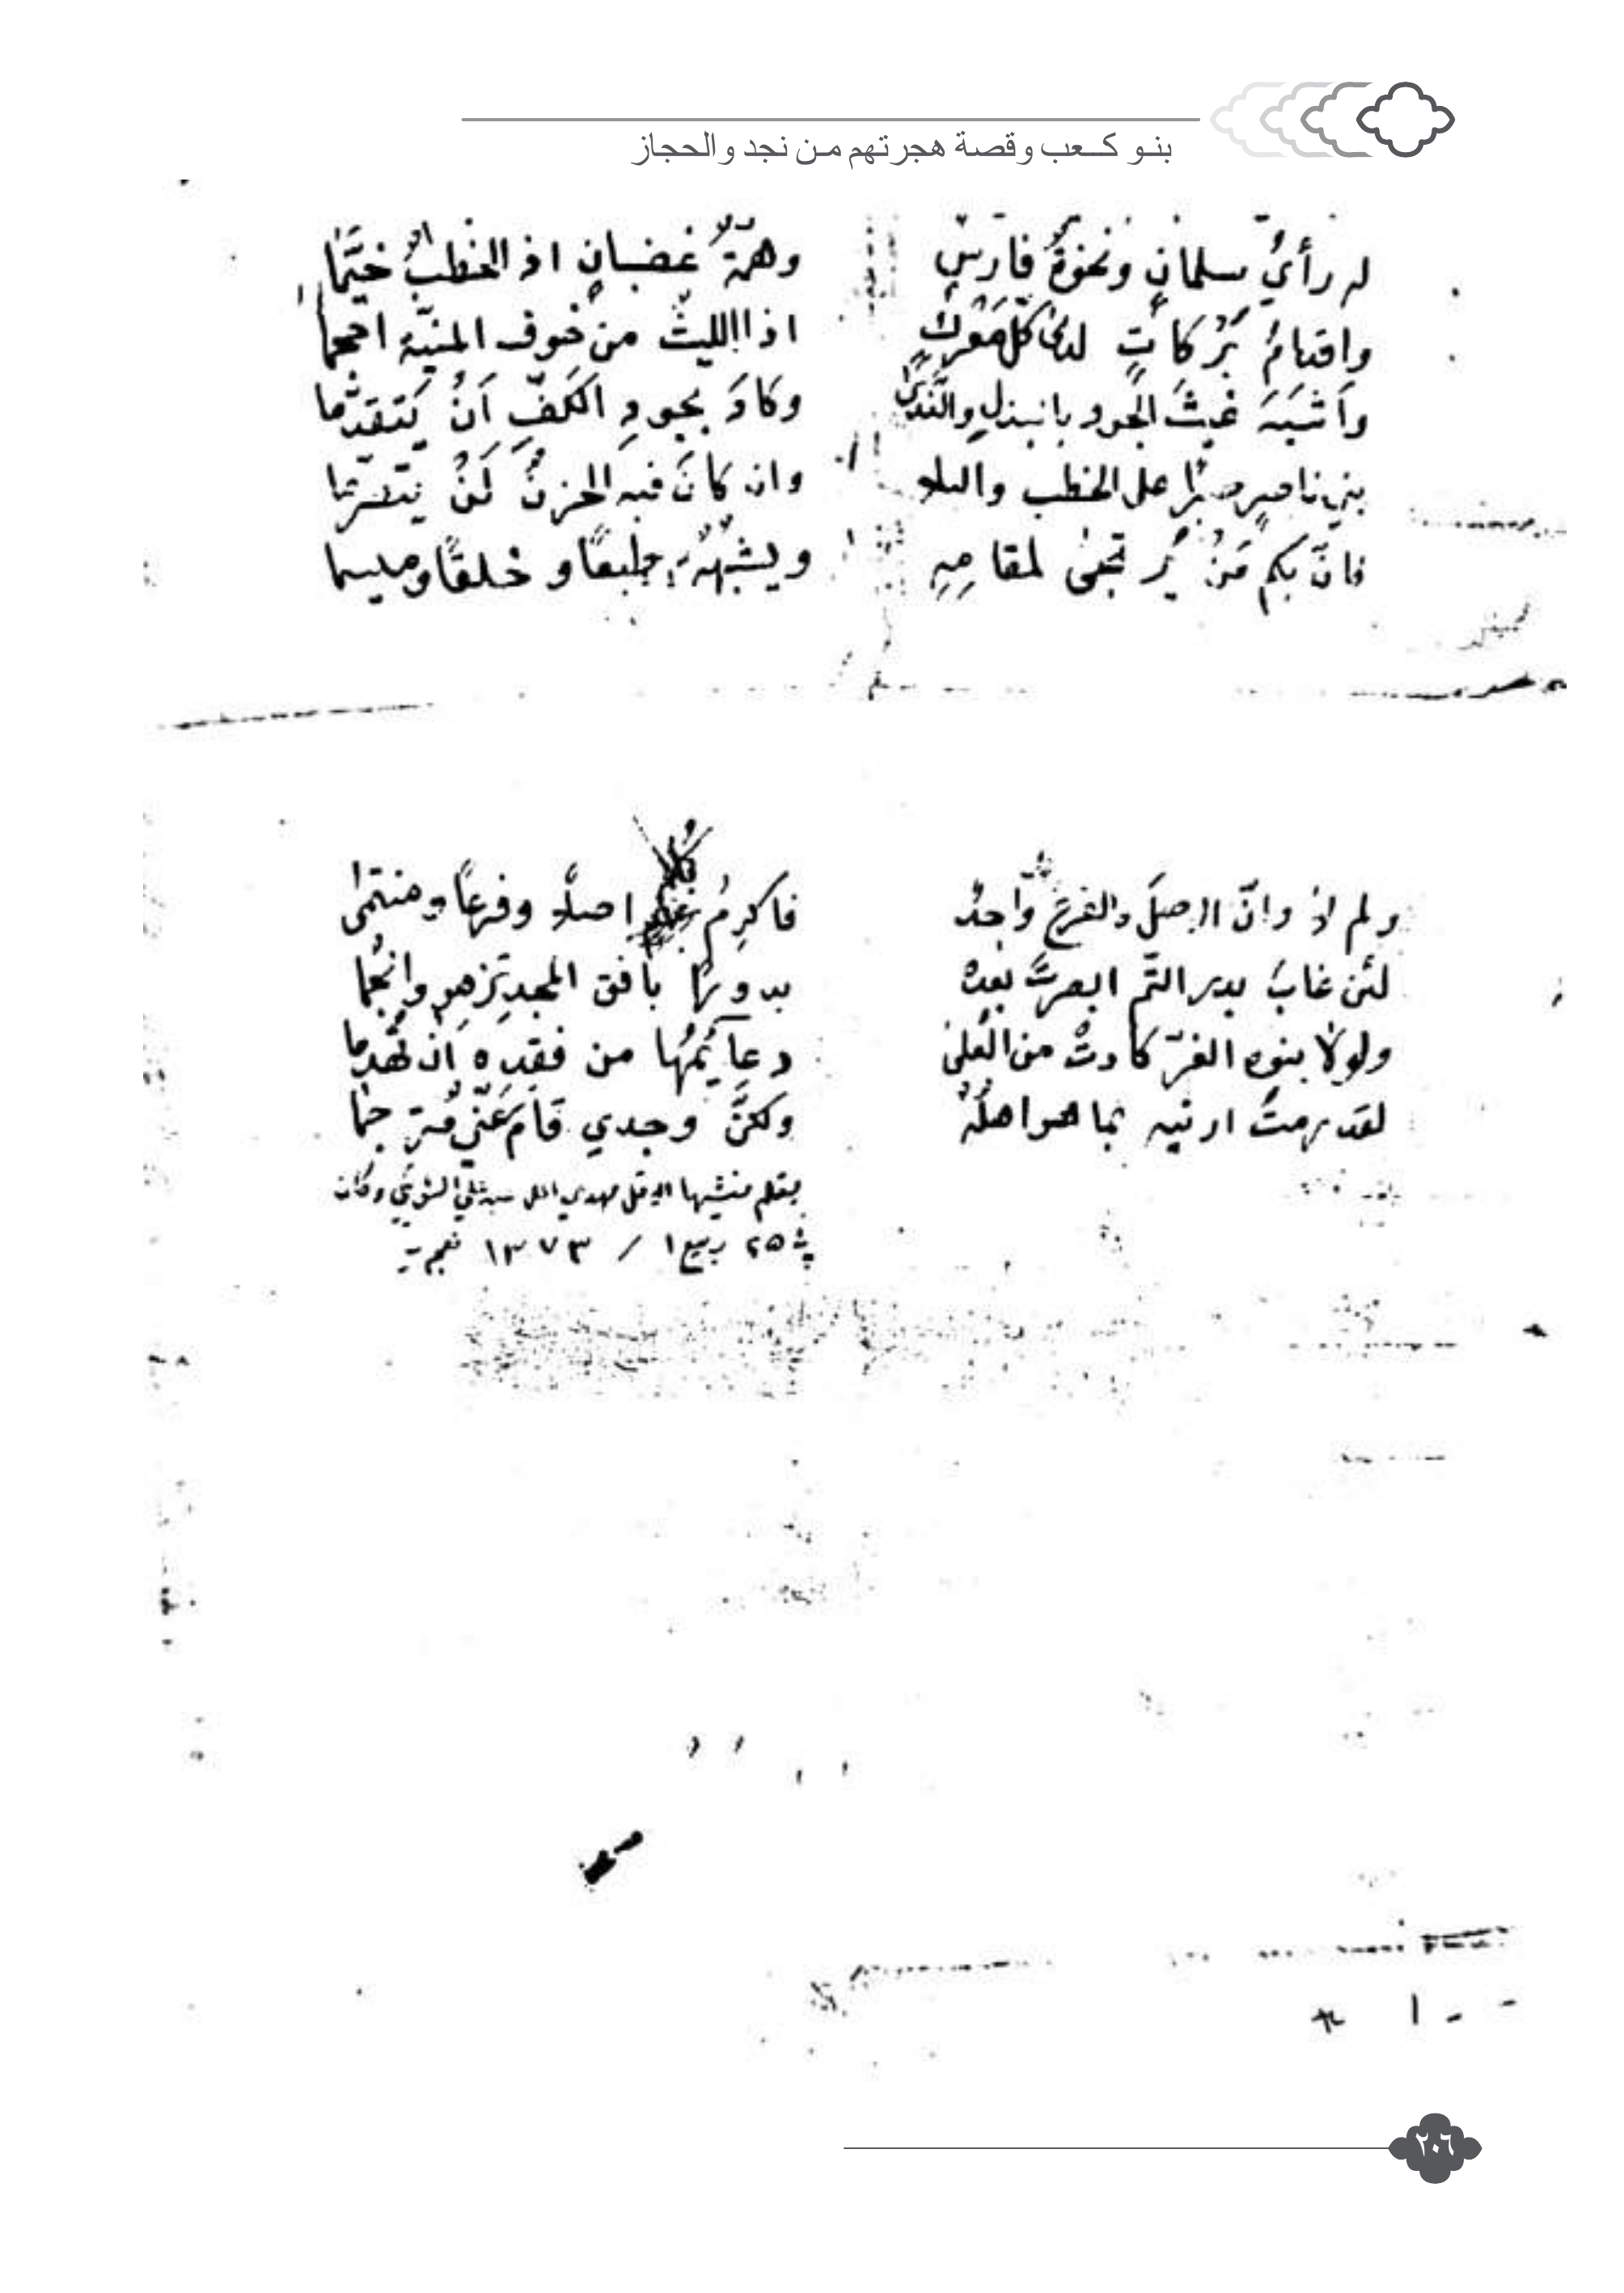 بنو كعب وقصة هجرتهم من نجد والحجاز
له رأيُ سلمانٍ ونخوةُ فارسٍ وهمّةُ غضبانٍ اذ الخطبُ خيّما
واقدامُ بَرْكاتٍ لدى كلّ مَعْركٍ اذا الليثُ من خوف المنيّة احجما
وأشبَهَ غيثَ الجود بالبذلِ والنَّدىٰ وكادَ بجودِ الكفِّ أنْ يَتقدّما
بني ناصرٍ صبرًا على الخطب والبلا وان كانَ فيه الحزنُ لَنْ
فانّ بكم مَنْ يُرتجىٰ لمقامِهِ ويشبهُهُ طبعًا و خلقًا وميسما
ولم لا وانّ الاصلَ والفرعَ واحدٌ فاكرِمْ اصلاً وفرعًا ومنتمى
لئن غابَ بدر التّم ابصرتَ بعده بدورًا بافق المجدِ تزهو وانجُما
ولولا بنوه الغرّ كادتْ من العُلىٰ دعايُمُها من فقدِه أن تُهدّما
لقد رمتُ ارثيه بما هو اهلُهُ ولكنَّ وجدي قامَ عَنّي مُترجما
بقلم منشيها الاقل مهدي السيد علي وكان
٢٥ ربيع ١ / ١٣٧٣
٢٠٦